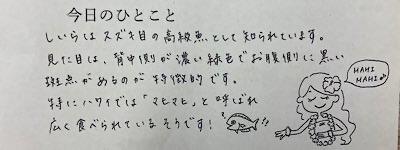 今日のひとこと
しいらはスズキ目の高級魚として知られています。
見た目は、背中側が濃い緑色でお腹側に黒い
斑点があるのが特徴的です。
特にハワイでは「マヒマヒ」と呼ばれ
広く食べられているそうです!
MAHI
MAHI♪